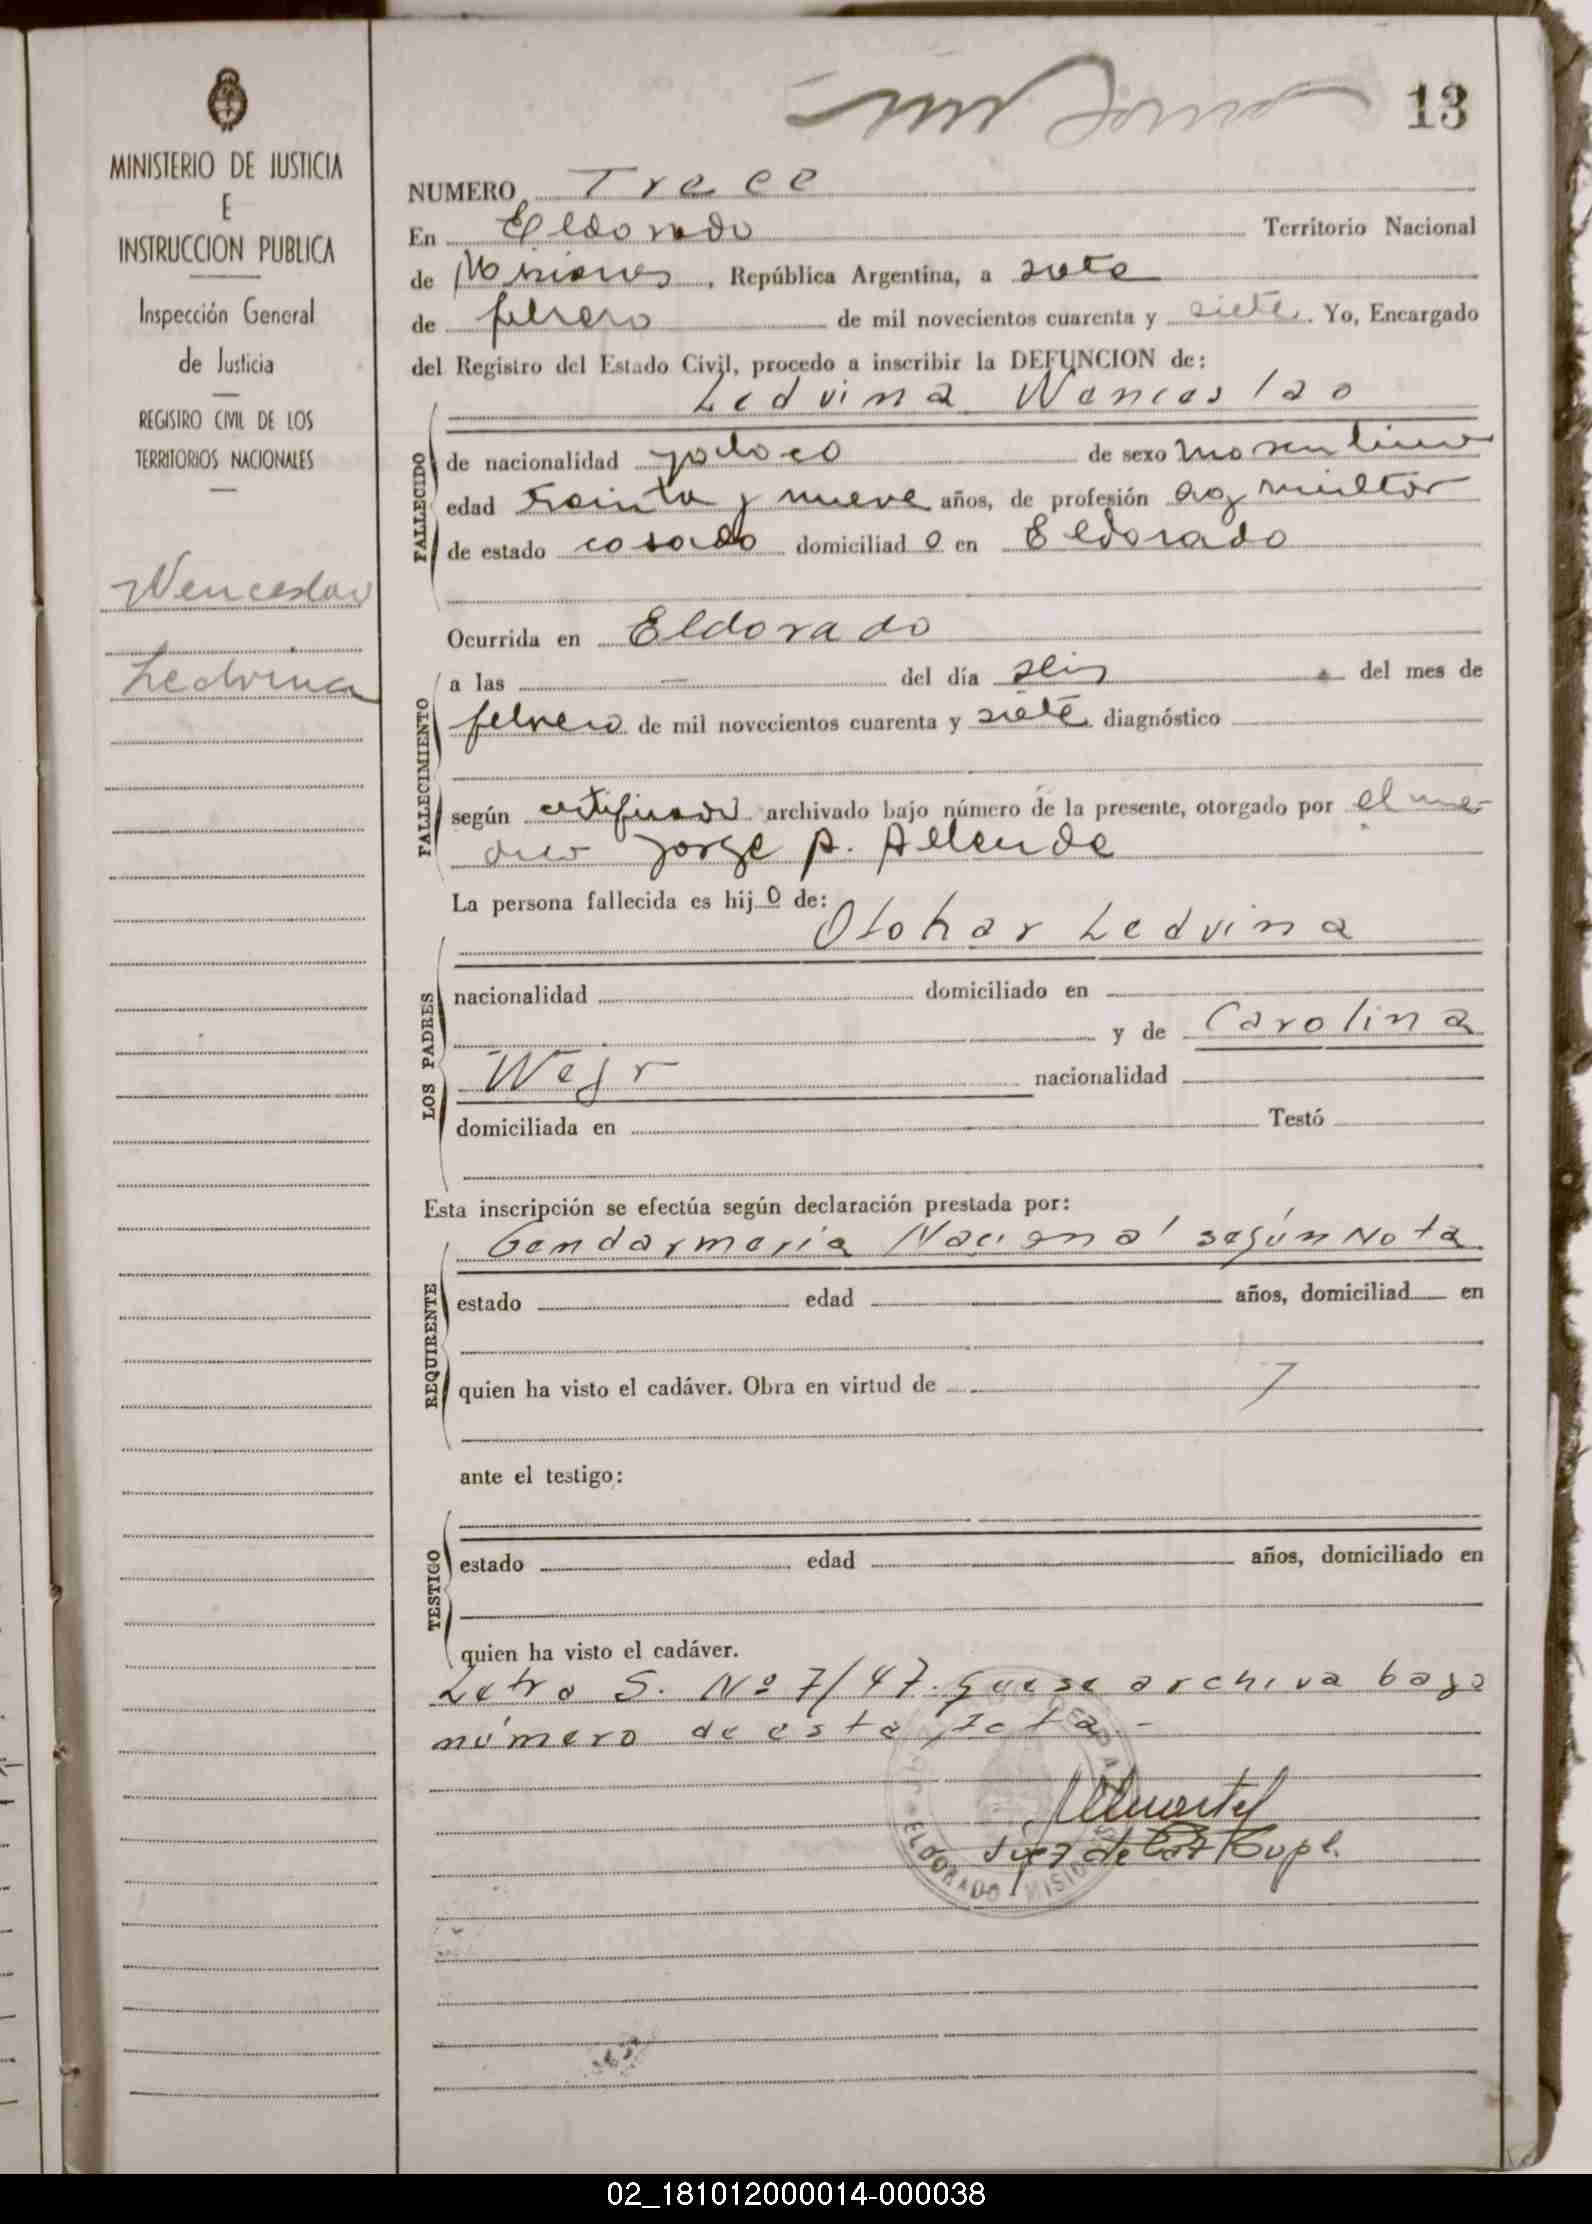 13
MINISTERIO DE JUSTICIA
E
INSTRUCCION PUBLICA
Inspección General
de Justicia
REGISTRO CIVIL DE LOS
TERRITORIOS NACIONALES
Wenceslao
Ledvina
NUMERO Trece
En Eldorado Territorio Nacional
de Misiones, República Argentina, a siete
de febrero de mil novecientos cuarenta y siete. Yo, Encargado
del Registro del Estado Civil, procedo a inscribir la DEFUNCION de:
Ledvina Wenceslao
FALLECIDO
de nacionalidad de sexo masculino
edad treinta y nueve años, de profesión agricultor
de estado casado domiciliad o en Eldorado
Ocurrida en Eldorado
FALLECIMIENTO
a las — del día seis del mes de
febrero de mil novecientos cuarenta y siete diagnóstico
según certificado archivado bajo número de la presente, otorgado por el mé-
dico Jorge A. Allende
La persona fallecida es hij o de:
Otokar Ledvina
LOS PADRES
nacionalidad domiciliado en
y de Carolina
Wejr nacionalidad
domiciliada en Testó
Esta inscripción se efectúa según declaración prestada por:
Gendarmería Nacional según Nota
REQUIRENTE
estado edad años, domiciliad en
quien ha visto el cadáver. Obra en virtud de
ante el testigo:
TESTIGO
estado edad años, domiciliado en
quien ha visto el cadáver.
Letra S. Nº 7/47. que se archiva bajo
número de esta acta.-
Juez de Paz Supl.
ELDORADO MISIONES
02_181012000014-000038